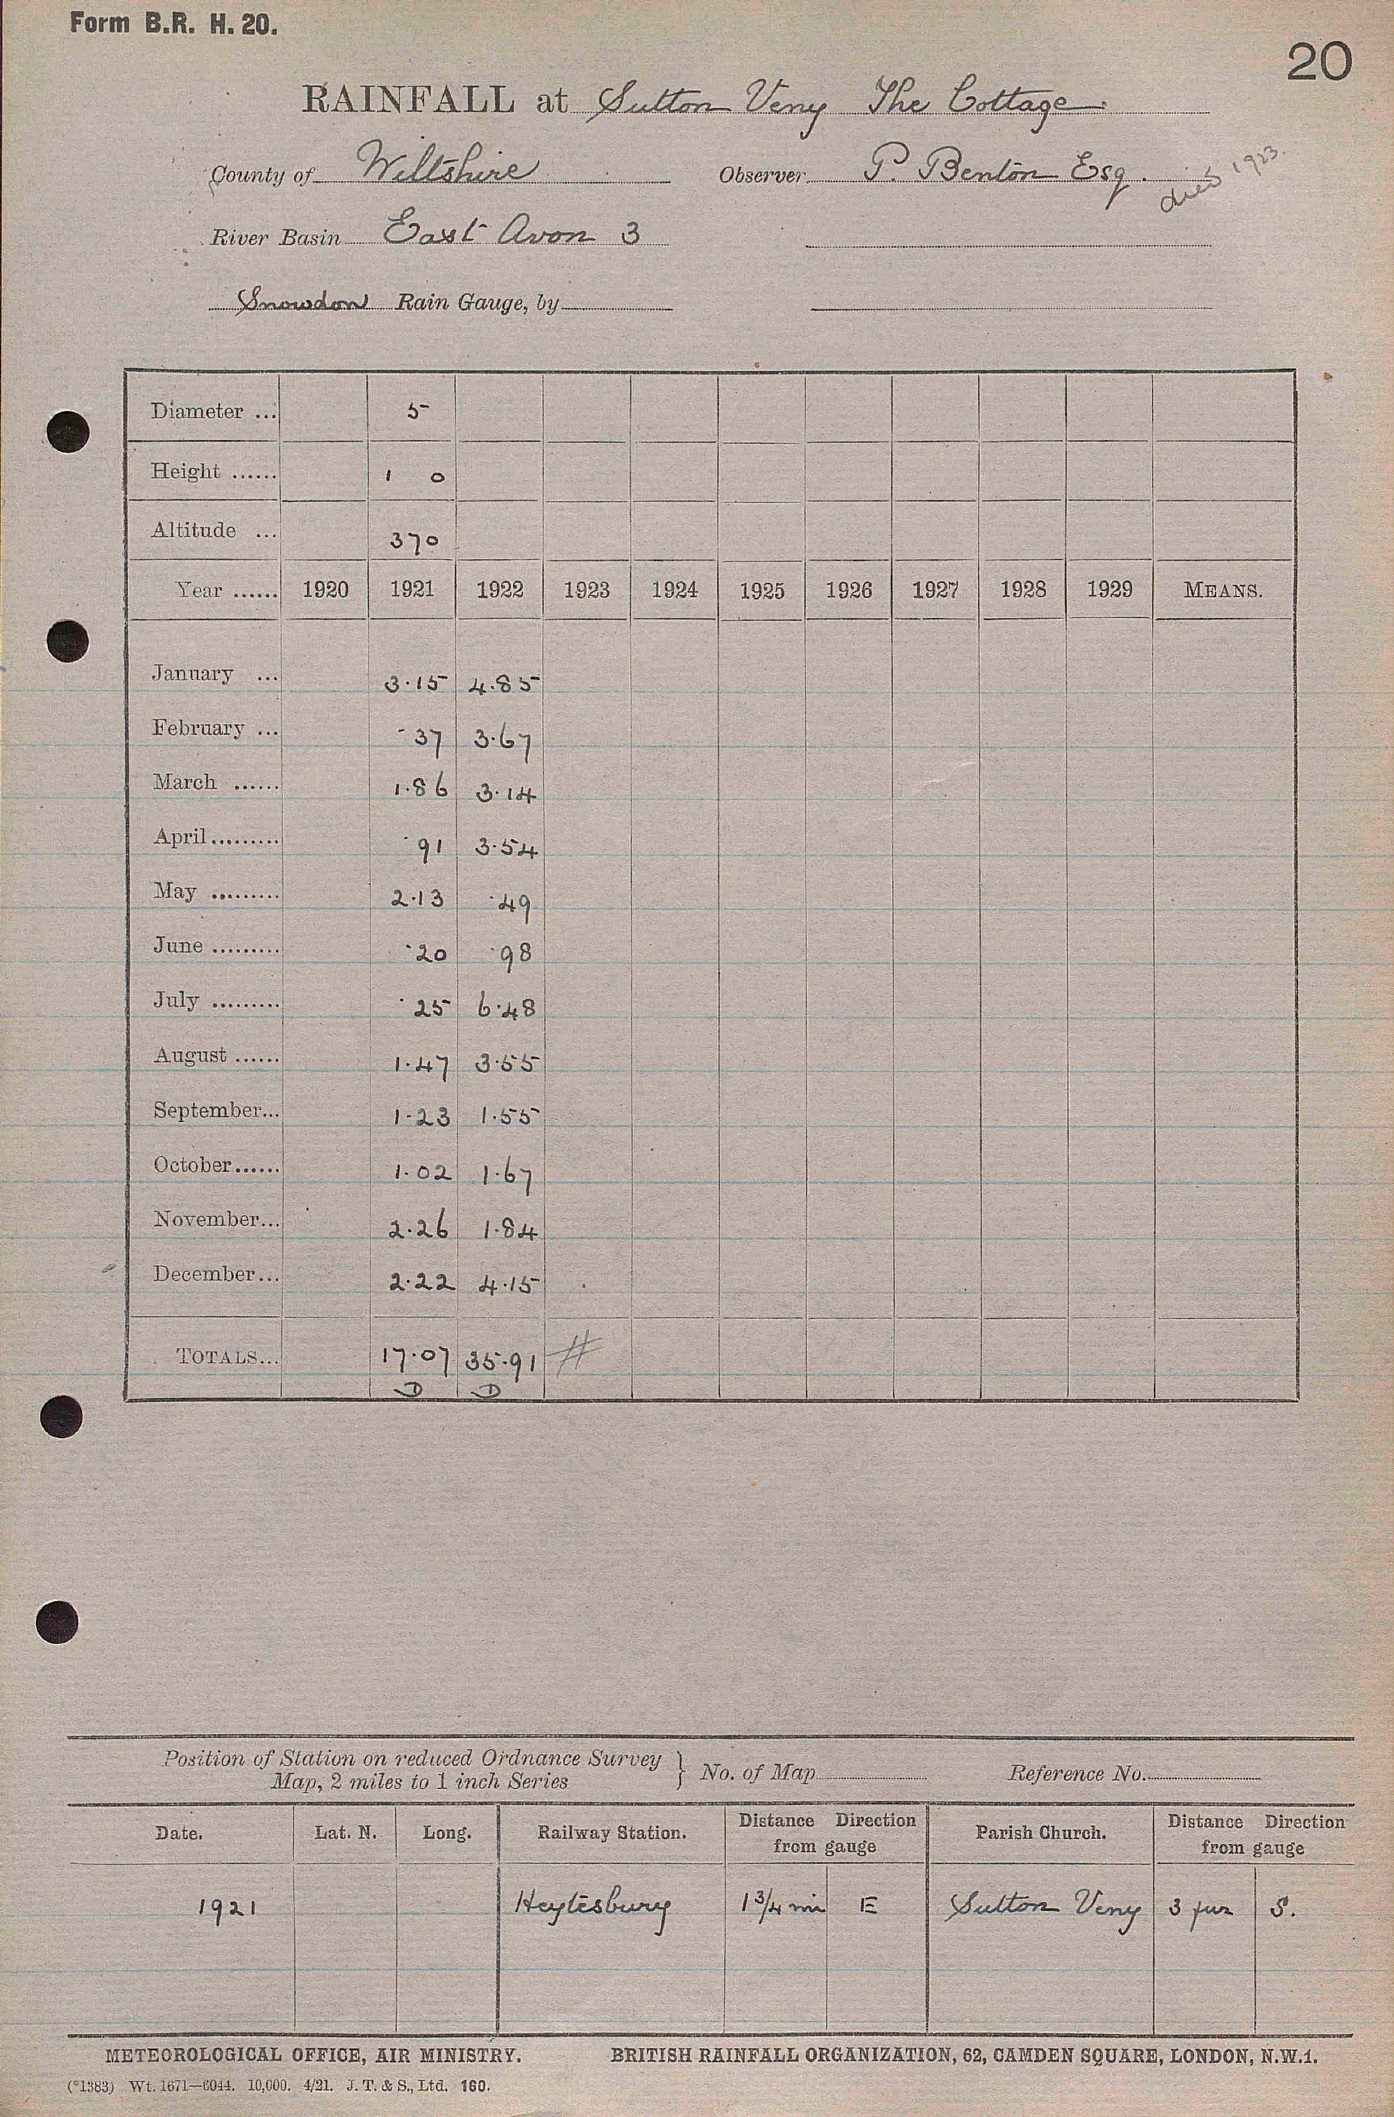 Form B.R. H. 20.
20
RAINFALL at Sutton Veny The Cottage.
County of Wiltshire Observer P. Benton Esq. died 1923.
River Basin East Avon 3
Snowdon Rain Gauge, by
Diameter ... 5
Height ...... 1 0
Altitude ... 370
Year ...... 1920 1921 1922 1923 1924 1925 1926 1927 1928 1929 MEANS.
January ... 3.15 4.85
February ... .37 3.67
March ...... 1.86 3.14
April......... .91 3.54
May ......... 2.13 .49
June ......... .20 .98
July ......... .25 6.48
August ...... 1.47 3.55
September... 1.23 1.55
October...... 1.02 1.67
November... 2.26 1.84
December... 2.22 4.15
TOTALS... 17.07 35.91 #
D D
Position of Station on reduced Ordnance Survey
Map, 2 miles to 1 inch Series } No. of Map Reference No.
Date. Lat. N. Long. Railway Station. Distance Direction from gauge Parish Church. Distance Direction from gauge
1921 Heytesbury 1 3/4 mi E Sutton Veny 3 fur S.
METEOROLOGICAL OFFICE, AIR MINISTRY. BRITISH RAINFALL ORGANIZATION, 62, CAMDEN SQUARE, LONDON, N.W.1.
(*1383) Wt. 1671—6044. 10,000. 4/21. J. T. & S., Ltd. 160.